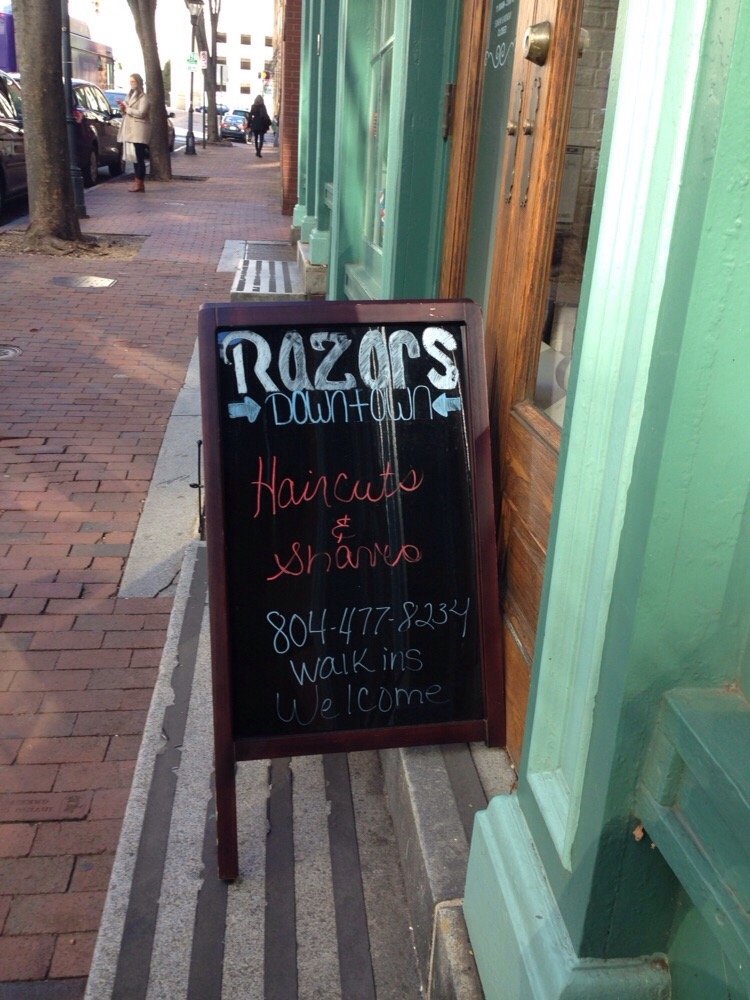 Razors
DOWNTOWN
Haircuts
&
Shaves
804-477-8234
Walk ins
Welcome